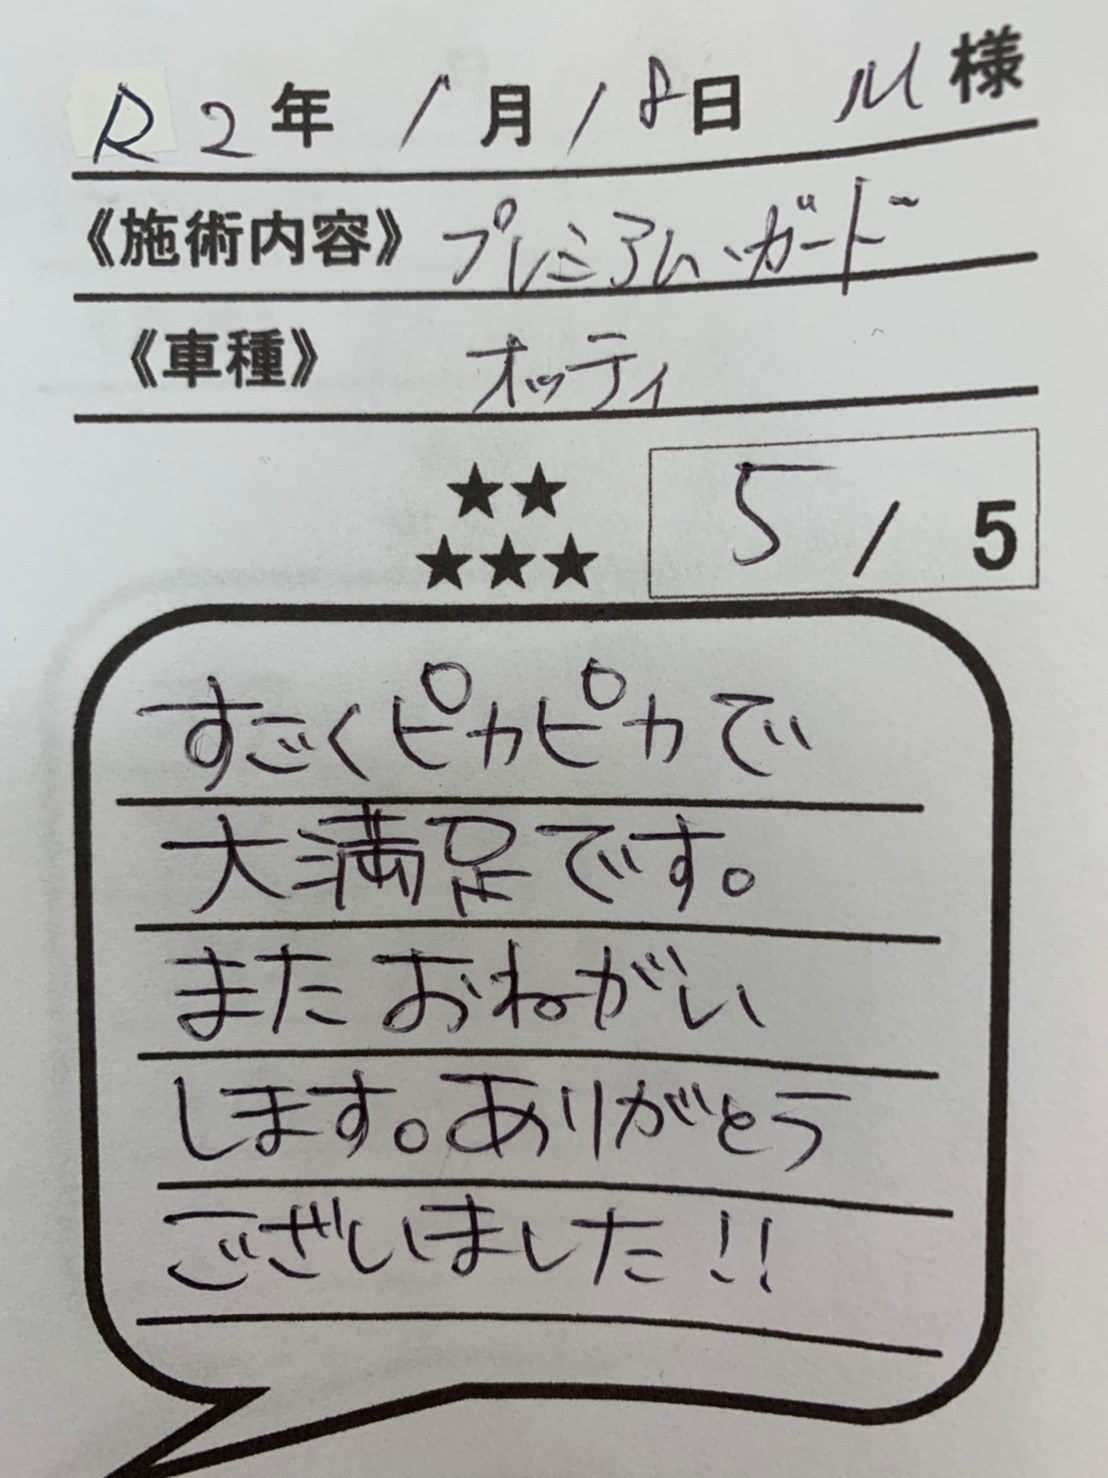 R2年1月18日 M様
《施術内容》プレミアム・ガード
《車種》オッティ
★★
★★★
5/5
すごくピカピカで
大満足です。
またおねがい
します。ありがとう
ございました!!